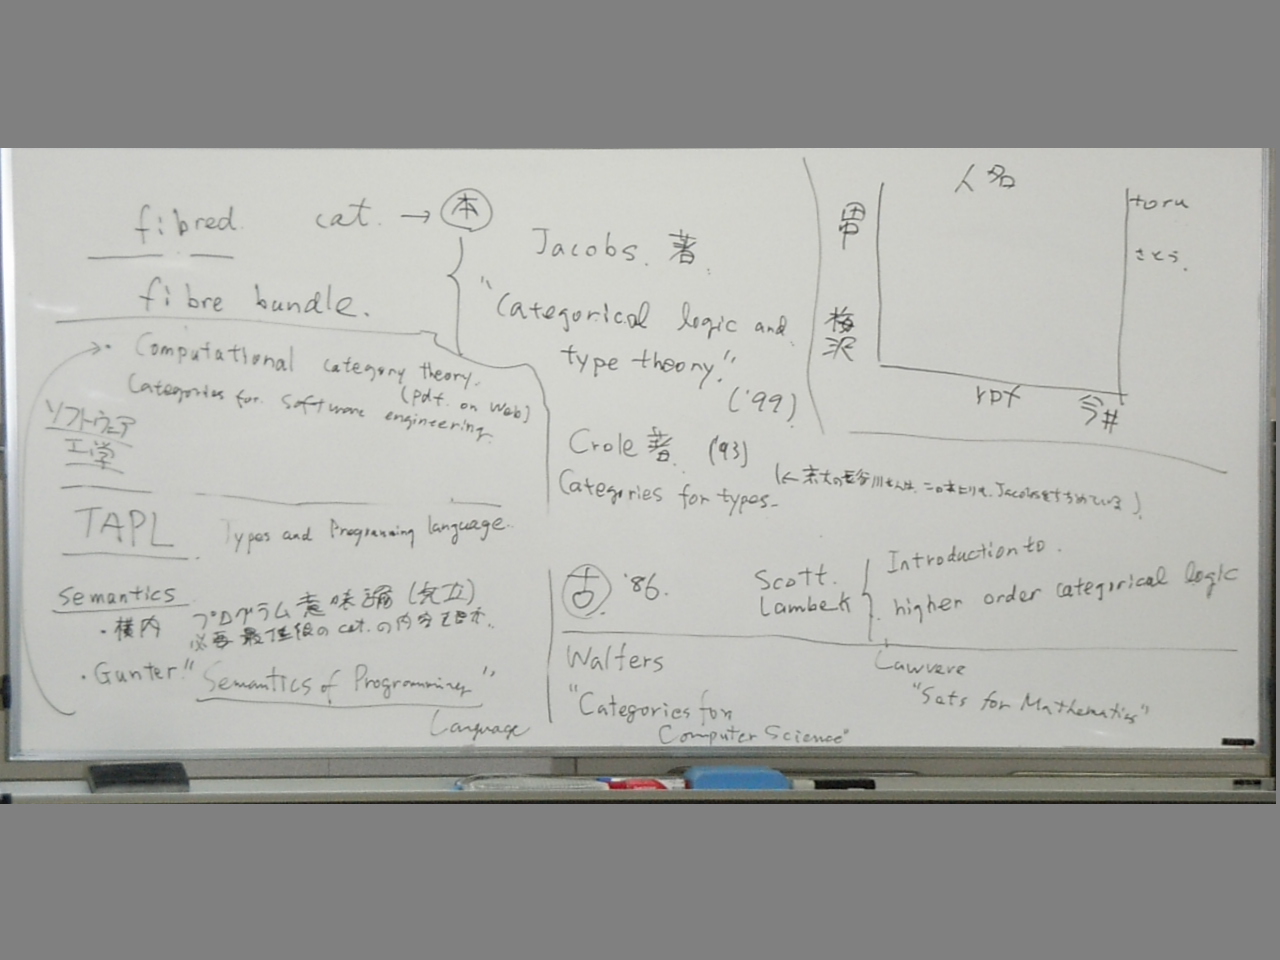 fibred cat. → 本
fibre bundle.
Jacobs 著.
"Categorical logic and
type theory."
('99)
Crole 著. ('93)
Categories for types.
(← 京大の長谷川さんは、この本よりも、Jacobsをすすめている)
・Computational category theory.
(pdf. on Web)
Categories for Software engineering.
ソフトウェア
工学
TAPL Types and Programming language.
Semantics
・横内 プログラム意味論 (共立)
必要最低限の cat. の内容
・Gunter "Semantics of Programming"
Language
古 '86. Scott.
Lambek
Introduction to.
higher order categorical logic
Walters
"Categories for
Computer Science"
Lawvere
"Sets for Mathematics"
人名
田中
梅沢
toru
さとう.
rpf
今井